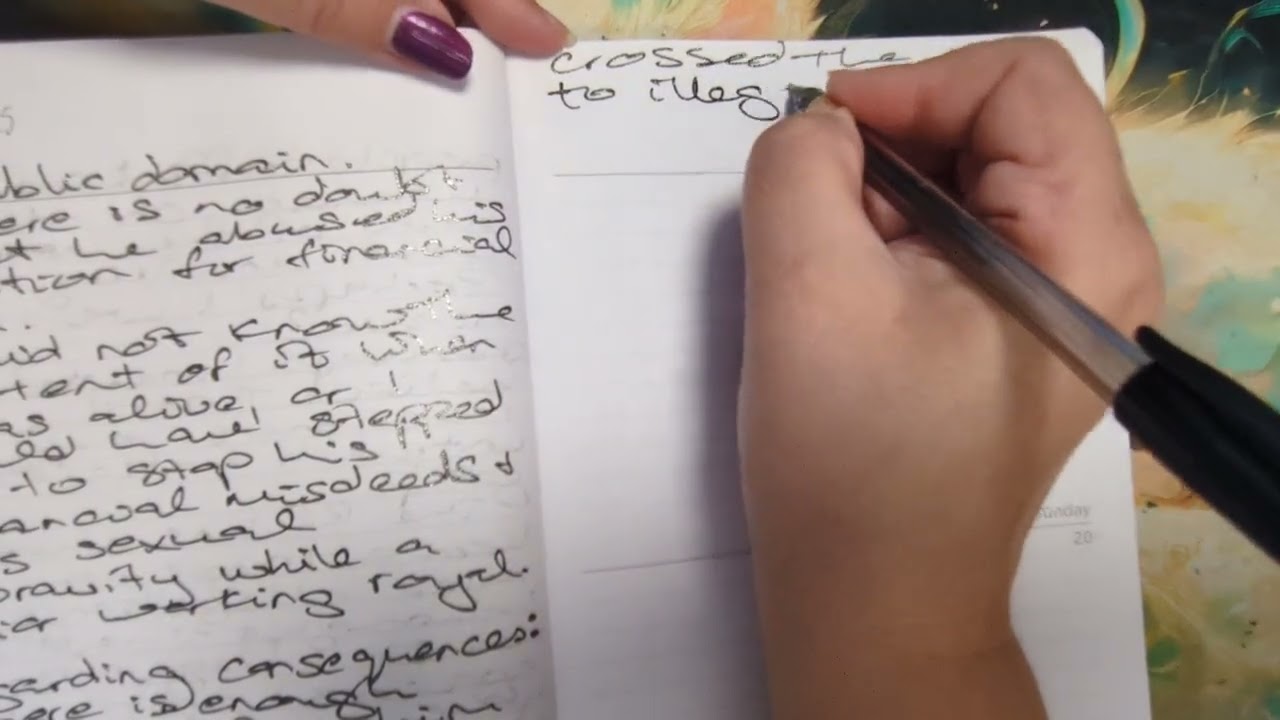 s
ublic domain.
ere is no doubt
t he abused his
tion for financial
did not know the
tent of it when
as alive, or I
ld have stepped
to stop his
ancial misdeeds &
s sexual
pravity while a
ior working royal.
garding consequences:
ere is enough
him
crossed the
to illeg
Sunday
20